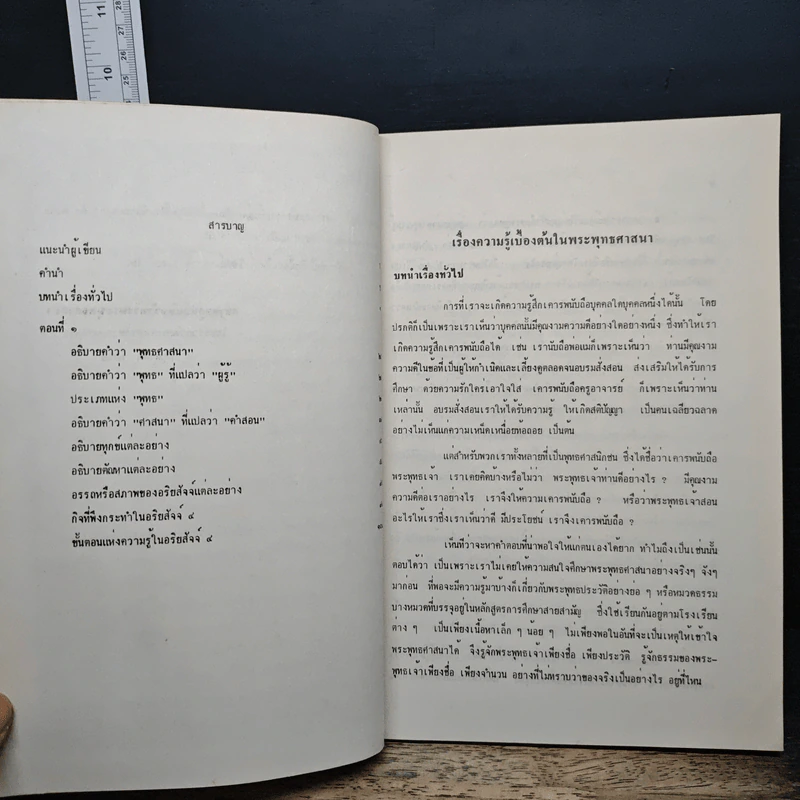 11
10
28
27
26
25
สารบาญ
แนะนำผู้เขียน
คำนำ
บทนำเรื่องทั่วไป
ตอนที่ ๑
อธิบายคำว่า "พุทธศาสนา"
อธิบายคำว่า "พุทธ" ที่แปลว่า "ผู้รู้"
ประเภทแห่ง "พุทธ"
อธิบายคำว่า "ศาสนา" ที่แปลว่า "คำสอน"
อธิบายทุกข์แต่ละอย่าง
อธิบายตัณหาแต่ละอย่าง
อรรถหรือสภาพของอริยสัจจ์แต่ละอย่าง
กิจที่พึงกระทำในอริยสัจจ์ ๔
ขั้นตอนแห่งความรู้ในอริยสัจจ์ ๔
เรื่องความรู้เบื้องต้นในพระพุทธศาสนา
บทนำเรื่องทั่วไป
การที่เราจะเกิดความรู้สึกเคารพนับถือบุคคลใดบุคคลหนึ่งได้นั้น โดย
ปรกติก็เป็นเพราะเราเห็นว่าบุคคลนั้นมีคุณงามความดีอย่างใดอย่างหนึ่ง ซึ่งทำให้เรา
เกิดความรู้สึกเคารพนับถือได้ เช่น เรานับถือพ่อแม่ก็เพราะเห็นว่า ท่านมีคุณงาม
ความดีในข้อที่เป็นผู้ให้กำเนิดและเลี้ยงดูตลอดจนอบรมสั่งสอน ส่งเสริมให้ได้รับการ
ศึกษา ด้วยความรักใคร่เอาใจใส่ เคารพนับถือครูอาจารย์ ก็เพราะเห็นว่าท่าน
เหล่านั้น อบรมสั่งสอนเราให้ได้รับความรู้ ให้เกิดสติปัญญา เป็นคนเฉลียวฉลาด
อย่างไม่เห็นแก่ความเหน็ดเหนื่อยท้อถอย เป็นต้น
แต่สำหรับพวกเราทั้งหลายที่เป็นพุทธศาสนิกชน ซึ่งได้ชื่อว่าเคารพนับถือ
พระพุทธเจ้า เราเคยคิดบ้างหรือไม่ว่า พระพุทธเจ้าท่านดีอย่างไร ? มีคุณงาม
ความดีต่อเราอย่างไร เราจึงให้ความเคารพนับถือ ? หรือว่าพระพุทธเจ้าสอน
อะไรให้เราซึ่งเราเห็นว่าดี มีประโยชน์ เราจึงเคารพนับถือ ?
เห็นทีว่าจะหาคำตอบที่น่าพอใจให้แก่ตนเองได้ยาก ทำไมถึงเป็นเช่นนั้น
ตอบได้ว่า เป็นเพราะเราไม่เคยให้ความสนใจศึกษาพระพุทธศาสนาอย่างจริงๆ จังๆ
มาก่อน ที่พอจะมีความรู้มาบ้างก็เกี่ยวกับพระพุทธประวัติอย่างย่อ ๆ หรือหมวดธรรม
บางหมวดที่บรรจุอยู่ในหลักสูตรการศึกษาสายสามัญ ซึ่งใช้เรียนกันอยู่ตามโรงเรียน
ต่าง ๆ เป็นเพียงเนื้อหาเล็ก ๆ น้อย ๆ ไม่เพียงพอในอันที่จะเป็นเหตุให้เข้าใจ
พระพุทธศาสนาได้ จึงรู้จักพระพุทธเจ้าเพียงชื่อ เพียงประวัติ รู้จักธรรมของพระ-
พุทธเจ้าเพียงชื่อ เพียงจำนวน อย่างที่ไม่ทราบว่าของจริงเป็นอย่างไร อยู่ที่ไหน